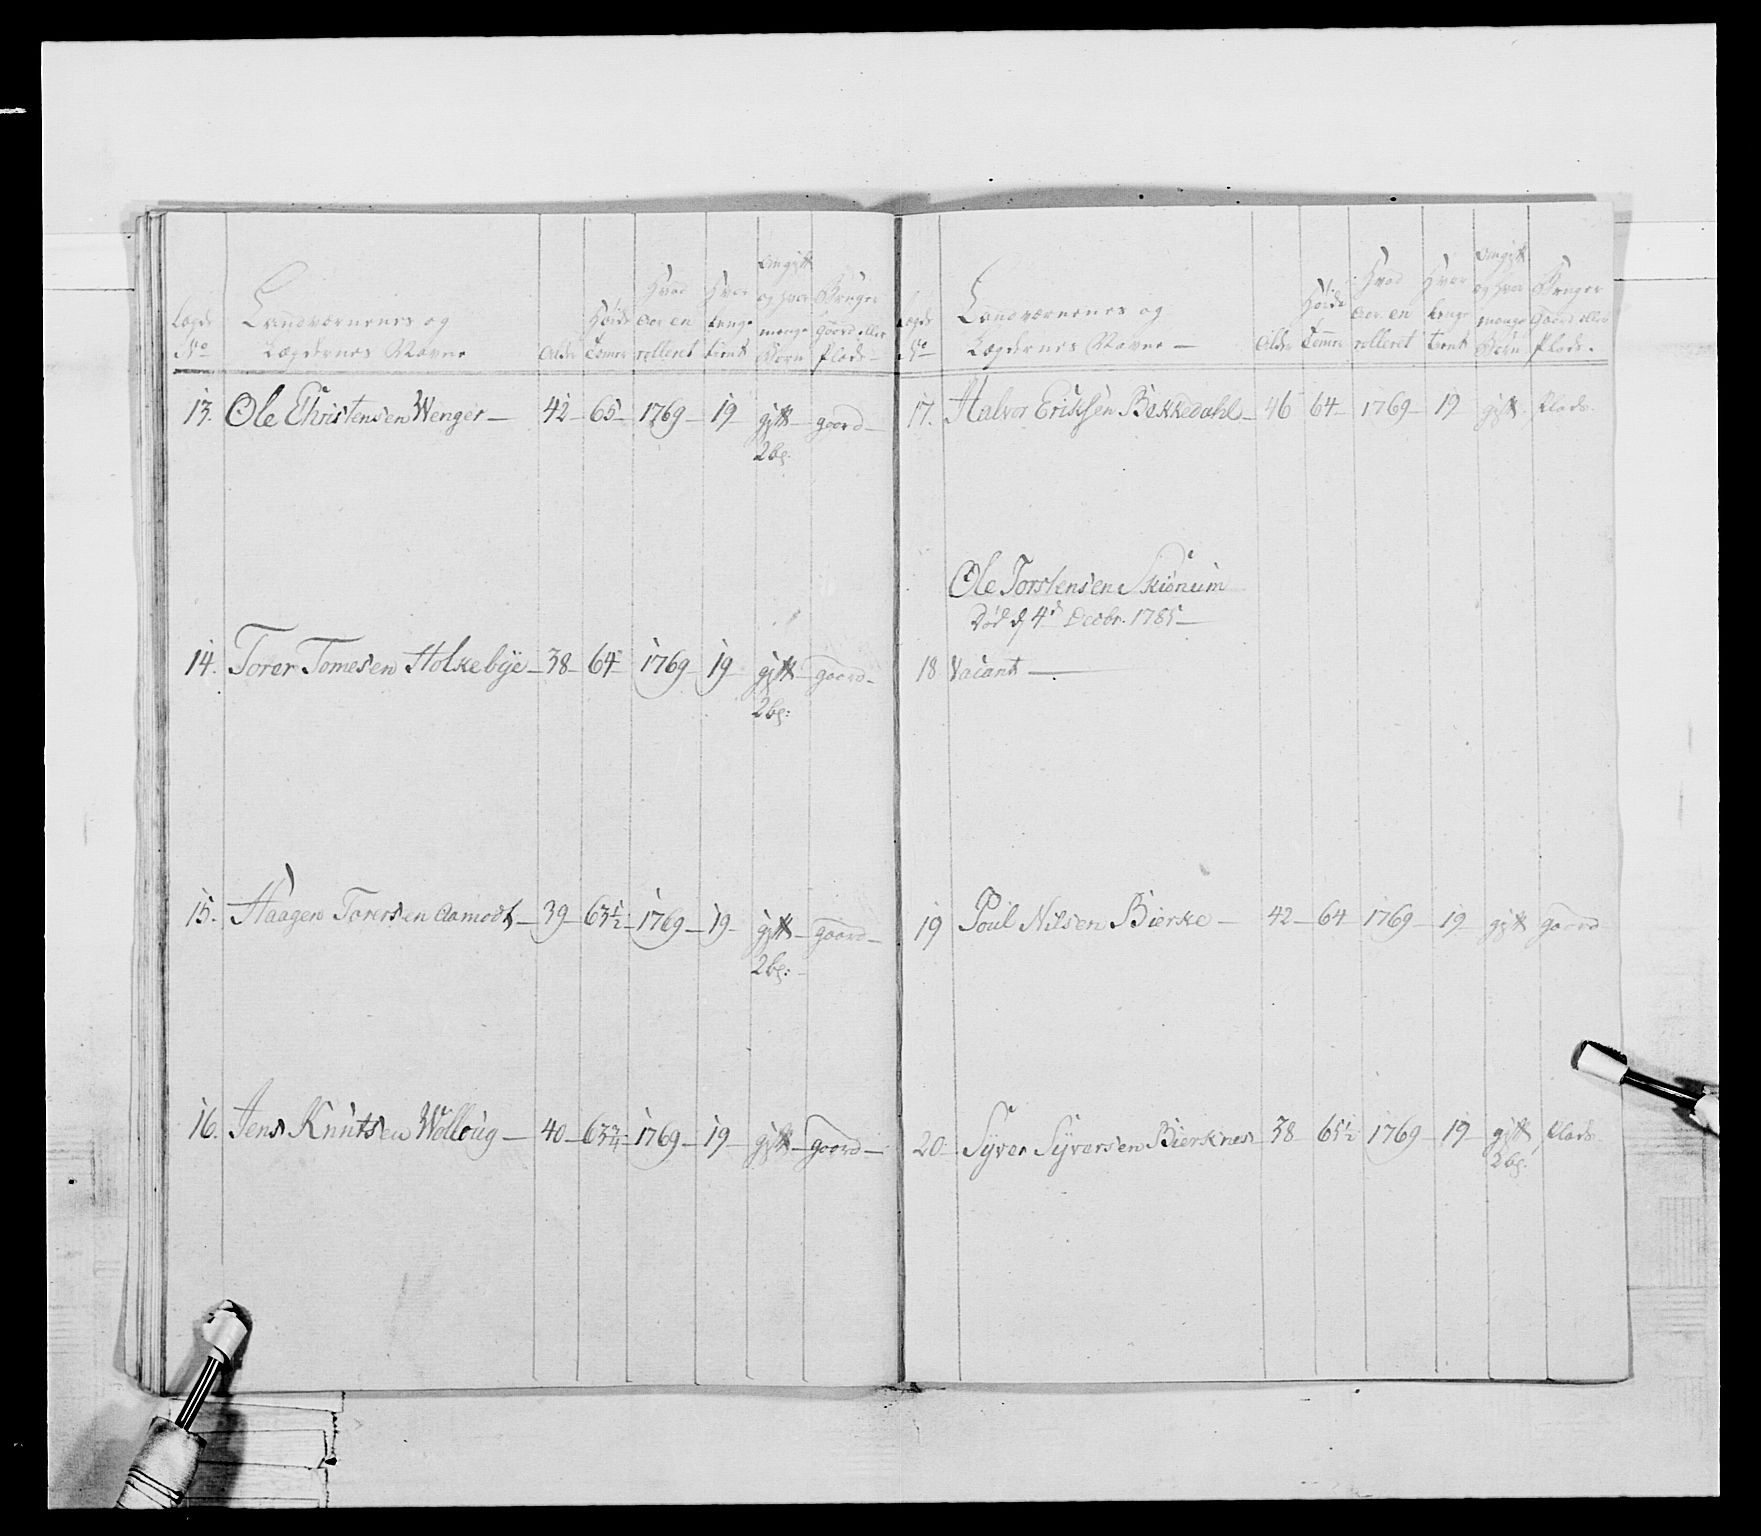 Lægds No
Landværnenes og
Lægdernes Navne
Alder
Høide Tomer
Hvad Aar en rolleret
Hvor lenge tient
Om gift og hvor mange Børn
Bruger gaard eller Plads
13. Ole Christensen Wenger — 42 — 65 — 1769 — 19 — gift — gaard —
2 b:
14. Torer Tomesen Holkebye — 38 — 64 — 1769 — 19 — gift — gaard —
2 b:
15. Haagen Torersen Aamodt — 39 — 63 1/2 — 1769 — 19 — gift — gaard —
2 b:
16. Jens Knutsen Wolloug — 40 — 63 3/4 — 1769 — 19 — gift — gaard —
Lægds No
Landværnenes og
Lægdernes Navne —
Alder
Høide Tomer
Hvad Aar en rolleret
Hvor lenge tient
Om gift og hvor mange Børn
Bruger Gaard eller Plads.
17. Halvor Eriksen Bekkedahl — 46 64 — 1769 — 19 gift. Plads.
Ole Torstensen Skiønum
Død d 4d Decbr. 1785 —
18 Vacant —
19 Poul Nilsen Bierke — 42 — 64 1769 — 19 — gift gaard
20 Syver Syversen Bierknes 38 65 1/2 1769 — 19 — gift Plads
2 b: